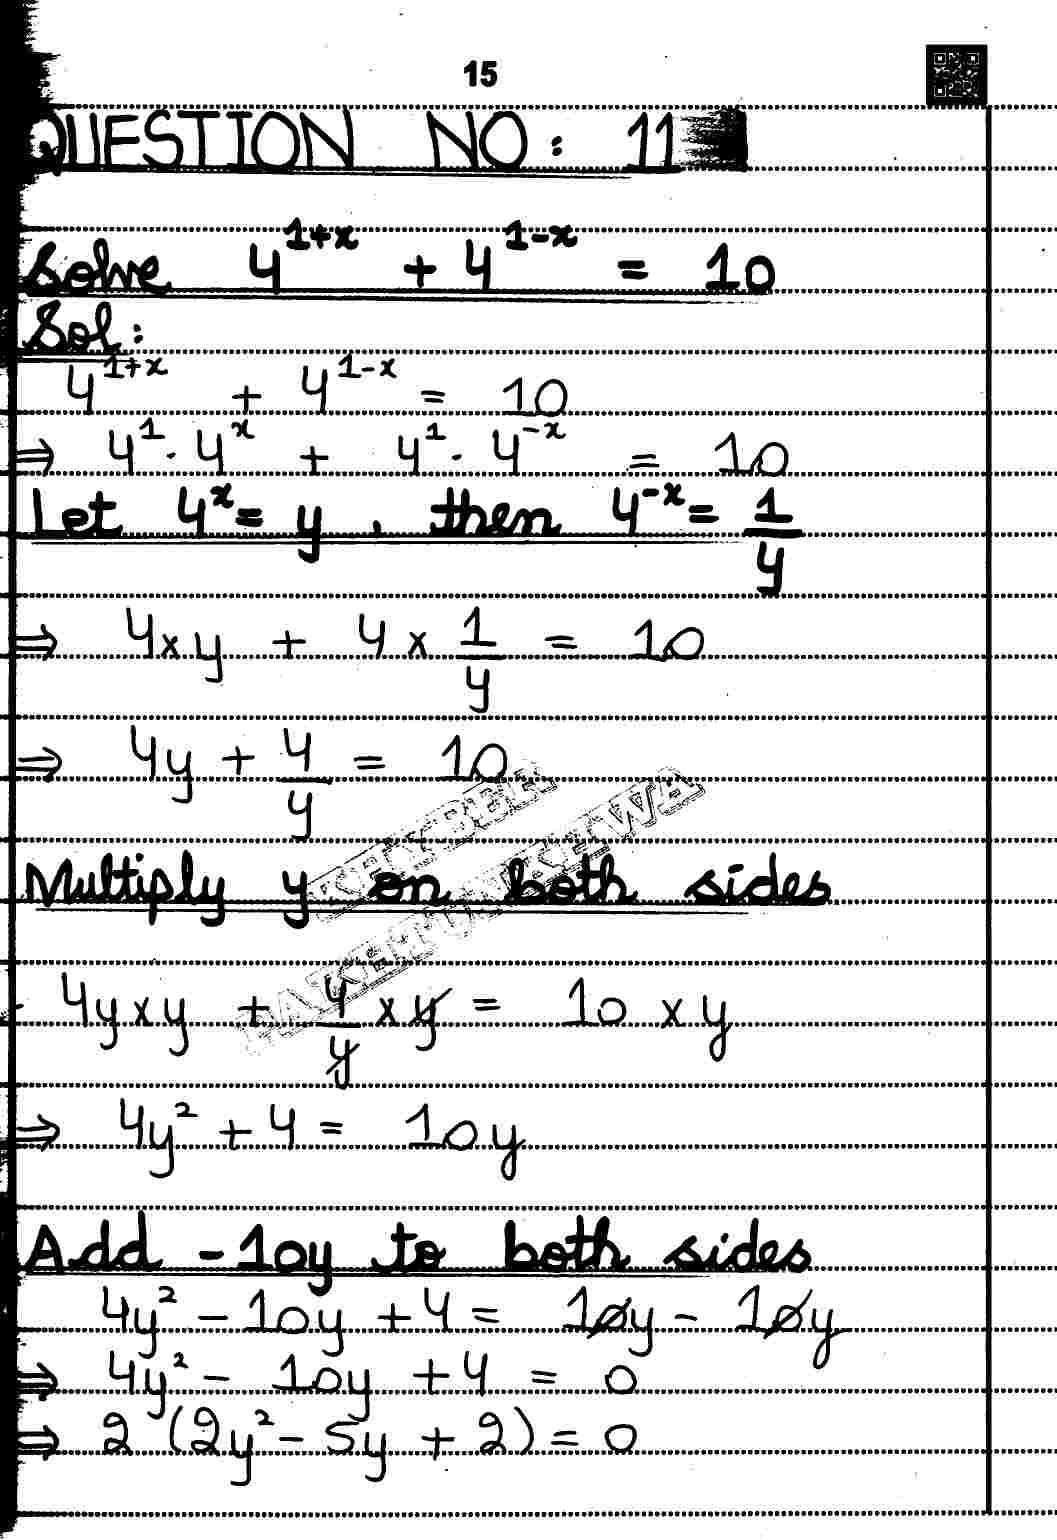 15
QUESTION NO: 11
Solve 4^{1+x} + 4^{1-x} = 10
Sol:
4^{1+x} + 4^{1-x} = 10
⇒ 4^1 · 4^x + 4^1 · 4^{-x} = 10
Let 4^x = y, then 4^{-x} = 1/y
⇒ 4 × y + 4 × 1/y = 10
⇒ 4y + 4/y = 10
KHYBER
PAKHTUNKHWA
Multiply y on both sides
4y × y + 4/y × y = 10 × y
⇒ 4y² + 4 = 10y
Add -10y to both sides
4y² - 10y + 4 = 10y - 10y
⇒ 4y² - 10y + 4 = 0
⇒ 2 (2y² - 5y + 2) = 0